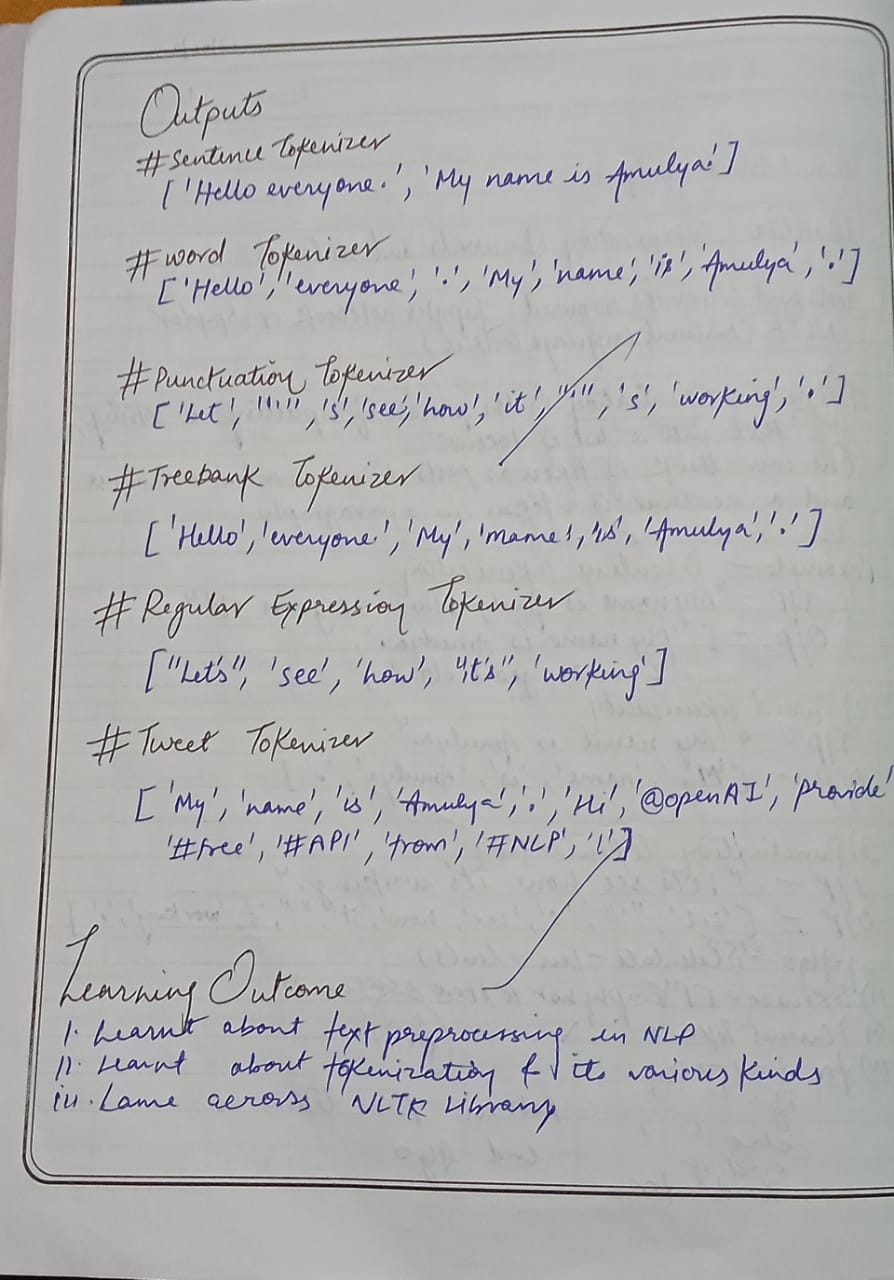 Outputs
#Sentence Tokenizer
['Hello everyone.', 'My name is Amulya.']
#word Tokenizer
['Hello', 'everyone', '.', 'My', 'name', 'is', 'Amulya', '.']
#Punctuation Tokenizer
['Let', "'", 's', 'see', 'how', 'it', "'", 's', 'working', '.']
#Treebank Tokenizer
['Hello', 'everyone.', 'My', 'name', 'is', 'Amulya', '.']
#Regular Expression Tokenizer
["Let's", 'see', 'how', "it's", 'working']
#Tweet Tokenizer
['My', 'name', 'is', 'Amulya', '.', 'Hi', '@openAI', 'provide'
'#free', '#API', 'from', '#NLP', '!']
Learning Outcome
I. Learnt about text preprocessing in NLP
II. Learnt about tokenization & its various kinds
iii. Came across NLTK Library